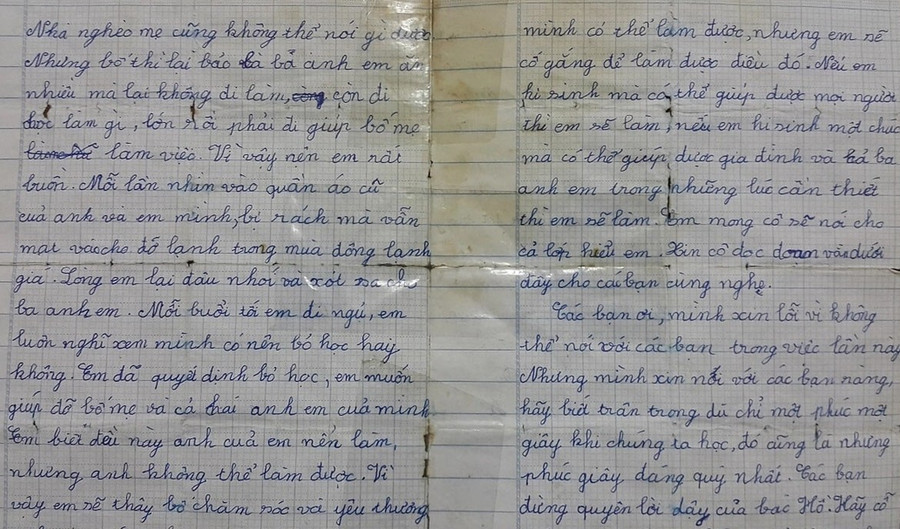 Nhà nghèo mẹ cũng không thể nói gì được
Nhưng bố thì lại bảo cả ba anh em ăn
nhiều mà lại không đi làm, còn đi
học làm gì, lớn rồi phải đi giúp bố mẹ
làm việc. Vì vậy nên em rất
buồn. Mỗi lần nhìn vào quần áo cũ
của anh và em mình, bị rách mà vẫn
mặt vào cho đỡ lạnh trong mùa đông lạnh
giá. Lòng em lại đâu nhói và xót xa cho
ba anh em. Mỗi buổi tối em đi ngủ, em
luôn nghĩ xem mình có nên bỏ học hay
không. Em đã quyết định bỏ học, em muốn
giúp đỡ bố mẹ và cả hai anh em của mình
Em biết điều này anh của em nên làm,
nhưng anh không thể làm được. Vì
vậy em sẽ thay bố chăm sóc và yêu thương
mình có thể làm được, nhưng em sẽ
cố gắng để làm được điều đó. Nếu em
hi sinh mà có thể giúp được mọi người
thì em sẽ làm, nếu em hi sinh một chút
mà có thể giúp được gia đình và cả ba
anh em trong những lúc cần thiết
thì em sẽ làm. Em mong cô sẽ nói cho
cả lớp hiểu em. Xin cô đọc đoạn văn dưới
đây cho các bạn cùng nghe.
Các bạn ơi, mình xin lỗi vì không
thể nói với các bạn trong việc lần này
Nhưng mình xin nói với các bạn rằng,
hãy biết trân trọng dù chỉ một phúc một
giây khi chúng ta học, đó cũng là nhưng
phúc giây đáng quý nhất. Các bạn
đừng quyên lời dậy của bác Hồ. Hãy cố